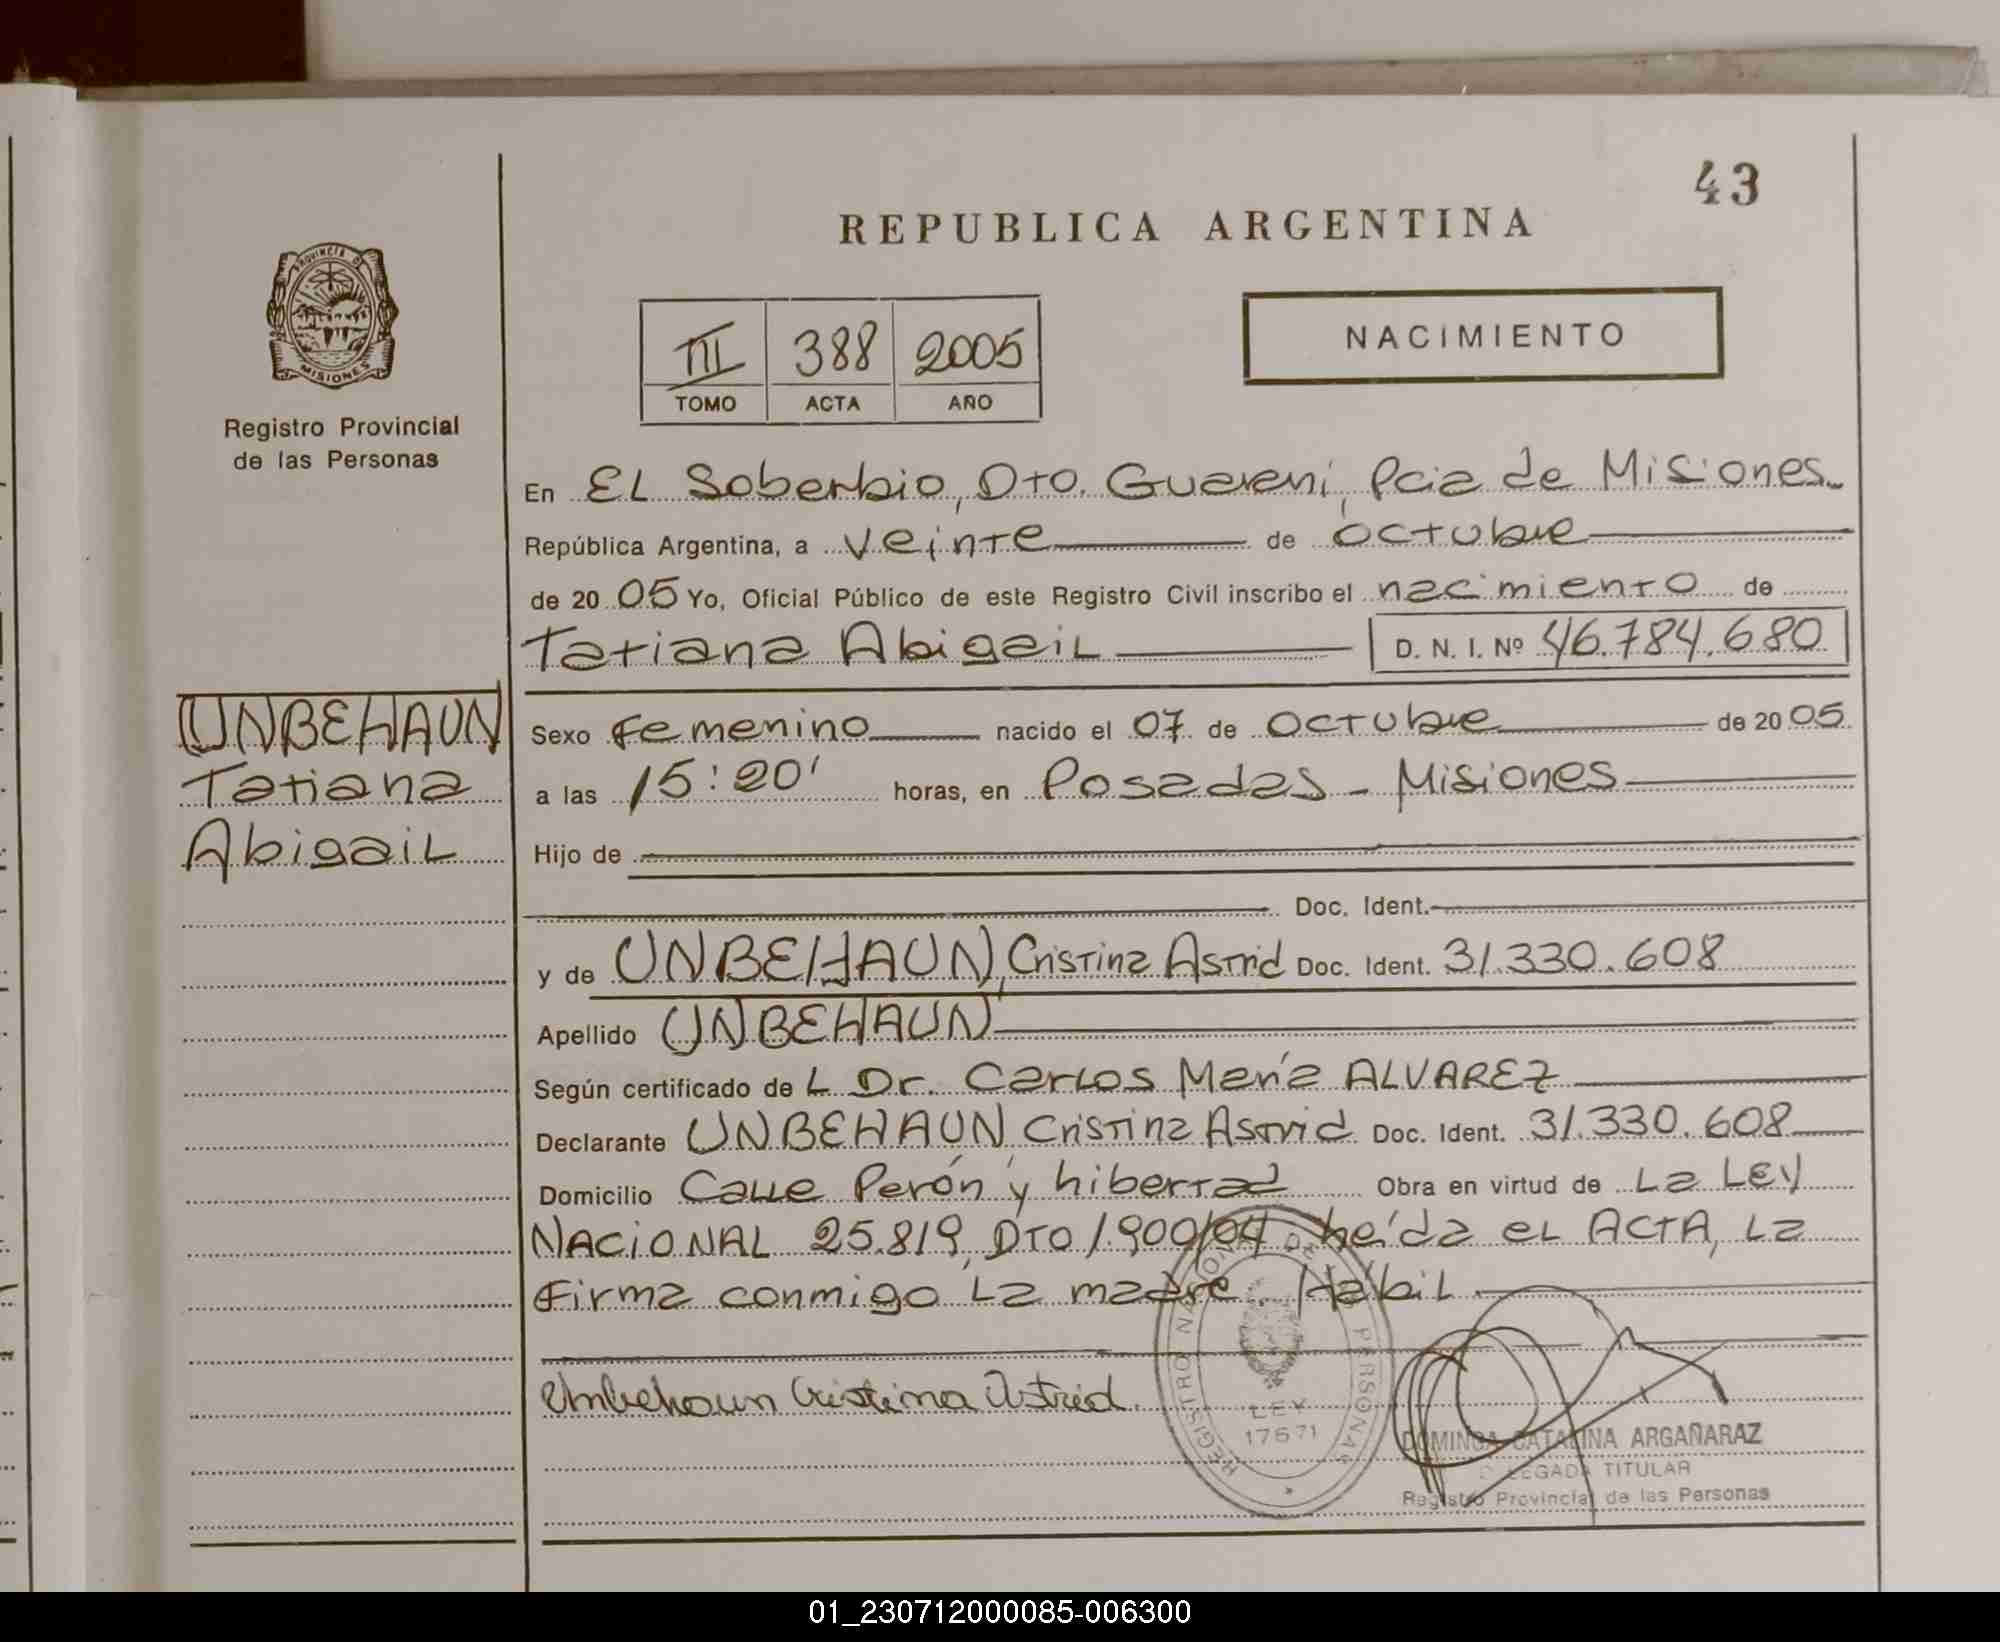 43
REPUBLICA ARGENTINA
PROVINCIA DE
MISIONES
Registro Provincial
de las Personas
III 388 2005
TOMO ACTA AÑO
NACIMIENTO
En EL Soberbio, Dto. Guaraní, Pcia de Misiones.
República Argentina, a veinte de octubre
de 2005 Yo, Oficial Público de este Registro Civil inscribo el nacimiento de
Tatiana Abigail D. N. I. Nº 46.784.680
UNBEHAUN
Tatiana
Abigail
Sexo Femenino nacido el 07 de octubre de 2005
a las 15:20' horas, en Posadas - Misiones
Hijo de
Doc. Ident.
y de UNBEHAUN, Cristina Astrid Doc. Ident. 31.330.608
Apellido UNBEHAUN
Según certificado de L Dr. Carlos María ALVAREZ
Declarante UNBEHAUN, Cristina Astrid Doc. Ident. 31.330.608
Domicilio Calle Perón y Libertad Obra en virtud de La Ley
NACIONAL 25.819, DTO 1.900/04 Leída el ACTA, La
Firma conmigo La madre. Hábil
Unbehaun Cristina Astrid.
REGISTRO NACIONAL DE PERSONAS
LEY
17671
DOMINGA CATALINA ARGAÑARAZ
DELEGADA TITULAR
Registro Provincial de las Personas
01_230712000085-006300